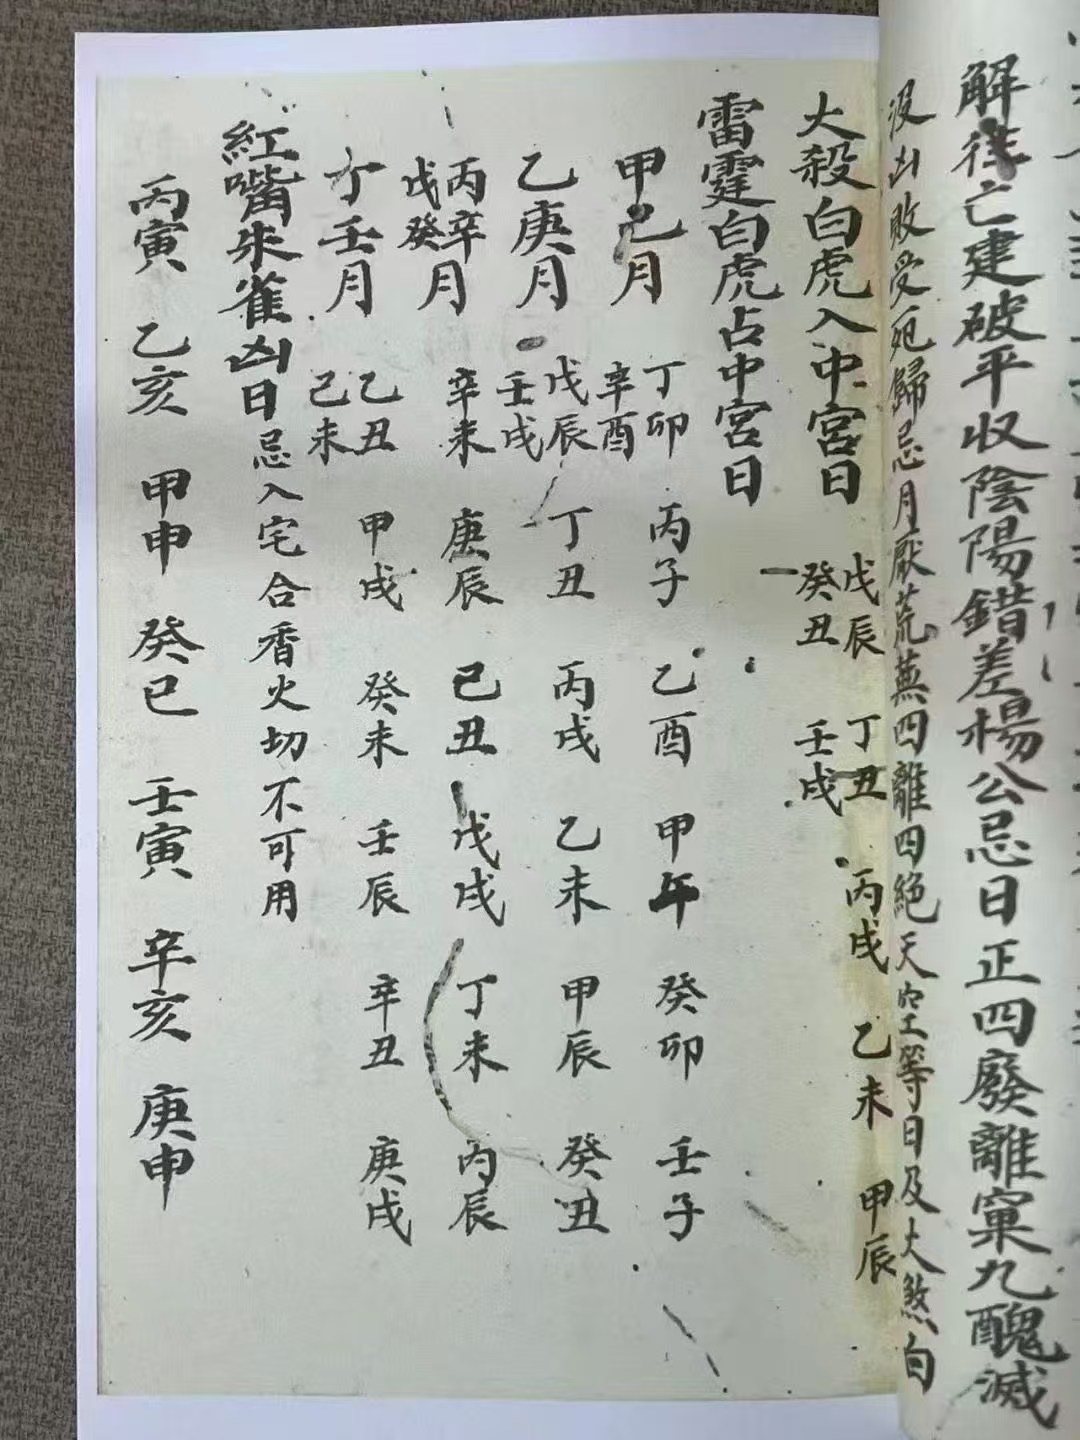 解往亡建破平収陰陽錯差楊公忌日正四廢離窠九醜滅
没凶敗受死歸忌月厭荒蕪四離四絶天空等日及大煞白
大殺白虎入中宮日 戊辰 丁丑 丙戌 乙未 甲辰
癸丑 壬戌
雷霆白虎占中宮日
甲己月 丁卯 丙子 乙酉 甲午 癸卯 壬子
辛酉
乙庚月 戊辰 丁丑 丙戌 乙未 甲辰 癸丑
壬戌
丙辛
戊癸月 辛未 庚辰 己丑 戊戌 丁未 丙辰
丁壬月 乙丑 甲戌 癸未 壬辰 辛丑 庚戌
己未
紅嘴朱雀凶日 忌入宅合香火切不可用
丙寅 乙亥 甲申 癸巳 壬寅 辛亥 庚申